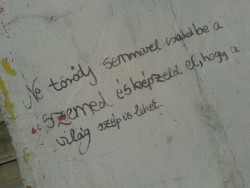 Ne törődj semmivel csukd be a
szemed és képzeld el, hogy a
világ szép is lehet.